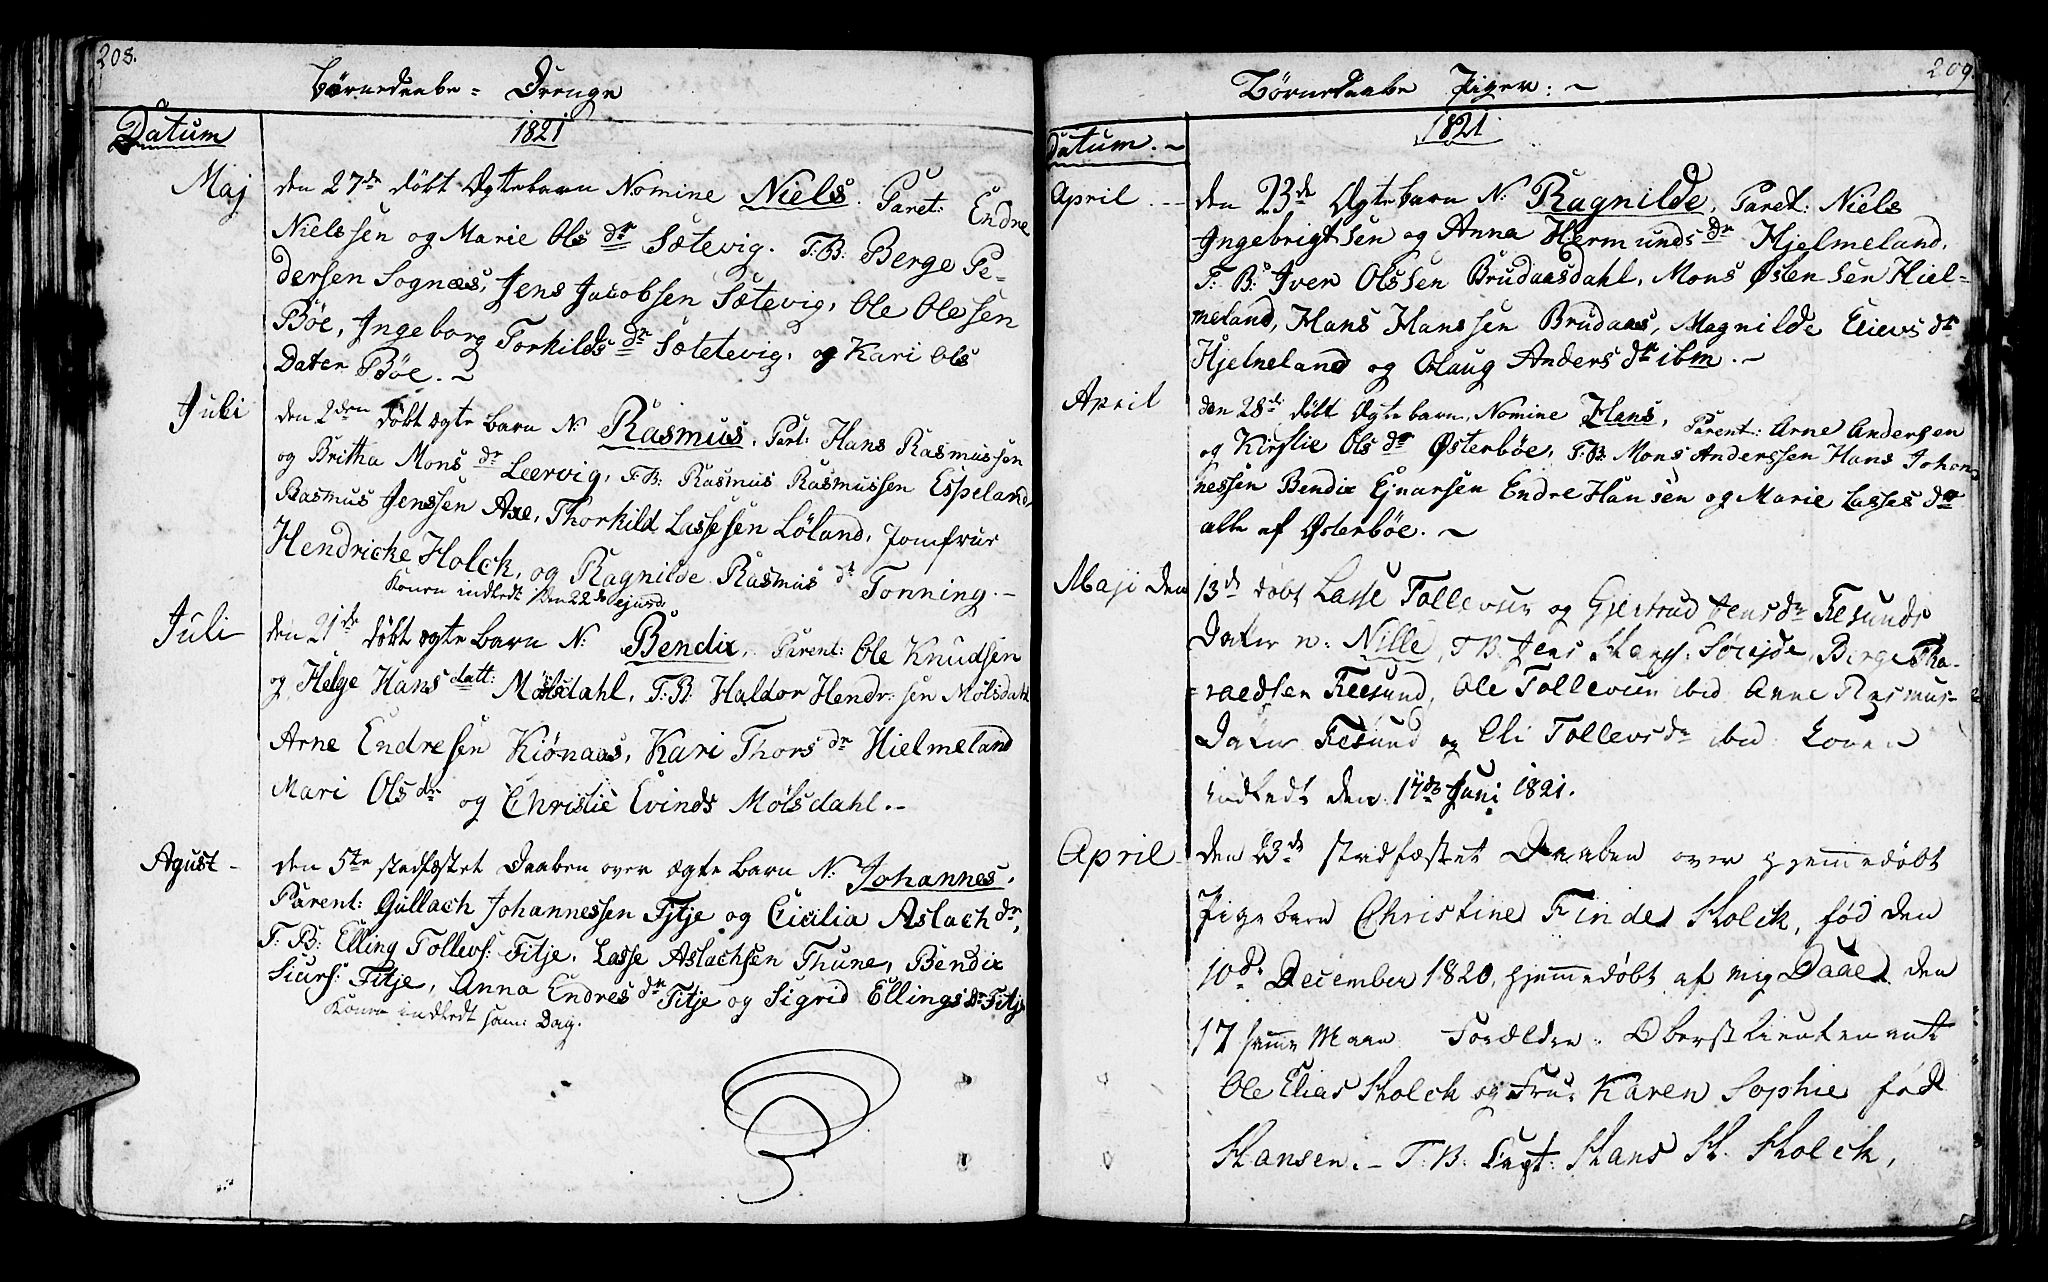 208.
Børnedaabe = Drenge
Datum
1821
Maj
den 27de døbt Ægtebarn Nomine Niels. Paret: Endre
Nielssen og Marie Ols dr Sætevig. T:B: Berge Pe-
dersen Sognæs, Jens Jacobsen Sætevig, Ole Olessen
Böe, Ingeborg Torkilds dr Sætetevig, og Kari Ols
Dater Böe. ~
Juli
den 2den døbt ægte barn N: Rasmus. Part: Hans Rasmussen
og Britha Mons dr Leervig, T:B: Rasmus Rasmussen Espeland,
Rasmus Jenssen Axe, Thorkild Lassesen Löland, Jomfrue
Hendricke Holck, og Ragnilde Rasmus dr Tonning. -
Konen indledt den 22de ejusd.
Juli
den 21de døbt ægte barn N: Bendix, Parent: Ole Knudsen
og Helge Hans datt: Mølsdahl, T:B: Haldor Hendr: sen Mölsdahl
Arne Endresen Kiønaas, Kari Thors dr Hielmeland
Mari Ols dr og Christie Evinds Mølsdahl. -
Agust -
den 5te stadfæstet Daaben over ægte barn N: Johannes.
Parent: Gullach Johannessen Fitje og Cicilia Aslach dr,
T:B: Elling Tollevs: Fitje, Lasse Aslachsen Thune, Bendix
Siurs: Fitje, Anna Endres dr Fitje og Sigrid Ellings dr Fitje
Konen indledt sam: Dag.
209.
Børnedaabe Piger: ~
Datum. -
1821
April. -
den 23de Ægtebarn N: Ragnilde, Paret: Niels
Ingebrigtsen og Anna Hermunds dr Hjelmeland,
T:B: Iver Olssen Brudaasdahl, Mons Østensen Hiel=
meland, Hans Hanssen Brudaas, Magnilde Elievs dr
Hjelmeland og Olaug Anders dr ibm. ~
April
den 28de døbt Ægte barn, Nomine Hans, Parent: Arne Andersen
og Kirstie Ols dr Østerbøe, T:B: Mons Anderssen Hans Johan
nessen Bendix Ejnarsen Endre Hansen og Marie Lasses dr
alle af Østerbøe. ~
Maji den
13de døbt Lasse Tollevsen og Gjertrud Jens dr Tesunds
Dater n: Nille, T.B. Jens Hans: Søreide, Berge Tha-
raldsen Teesund, Ole Tollevsen ibid Anne Rasmus-
Dater Tesund og Eli Tollevs dr ibid Konen
indledt den 17de Juni 1821.
April -
den 23de stadfæstet Daaben over hjemmedøbt
Pigebarn Christine Finde Holck, fød den
10de December 1820, hjemmedøbt af mig Daae den
17 samme Maan Forældre: Oberstlieutenant
Ole Elias Holck og Fru: Karen Sophie fød
Hansen. - T.B: Capt: Hans H. Holck,